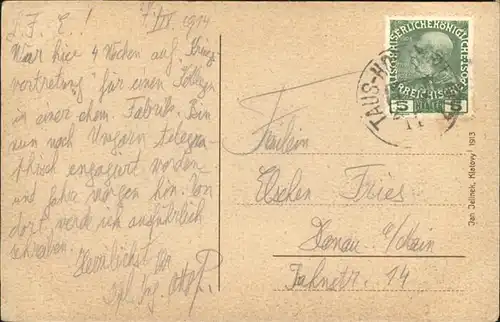 L. F. E.!
7/IX. 1914
War hier 4 Wochen auf "Kriegs-
vertretung" für einen Kollegen
in einer chem. Fabrik. Bin
nun nach Ungarn telegra-
phisch engagiert worden
und fahre morgen hin. Von
dort werde ich ausführlich
schreiben.
Herzlichst Ihr
Dpl. Ing. Otto P.
KAISERLICHE KÖNIGLICHE ÖSTERREICHISCHE
5 HELLER 5
TAUS
Fräulein
Elschen Fries
Hanau a/Main
Jahnstr. 14
Jan Jelinek, Klatovy 1913